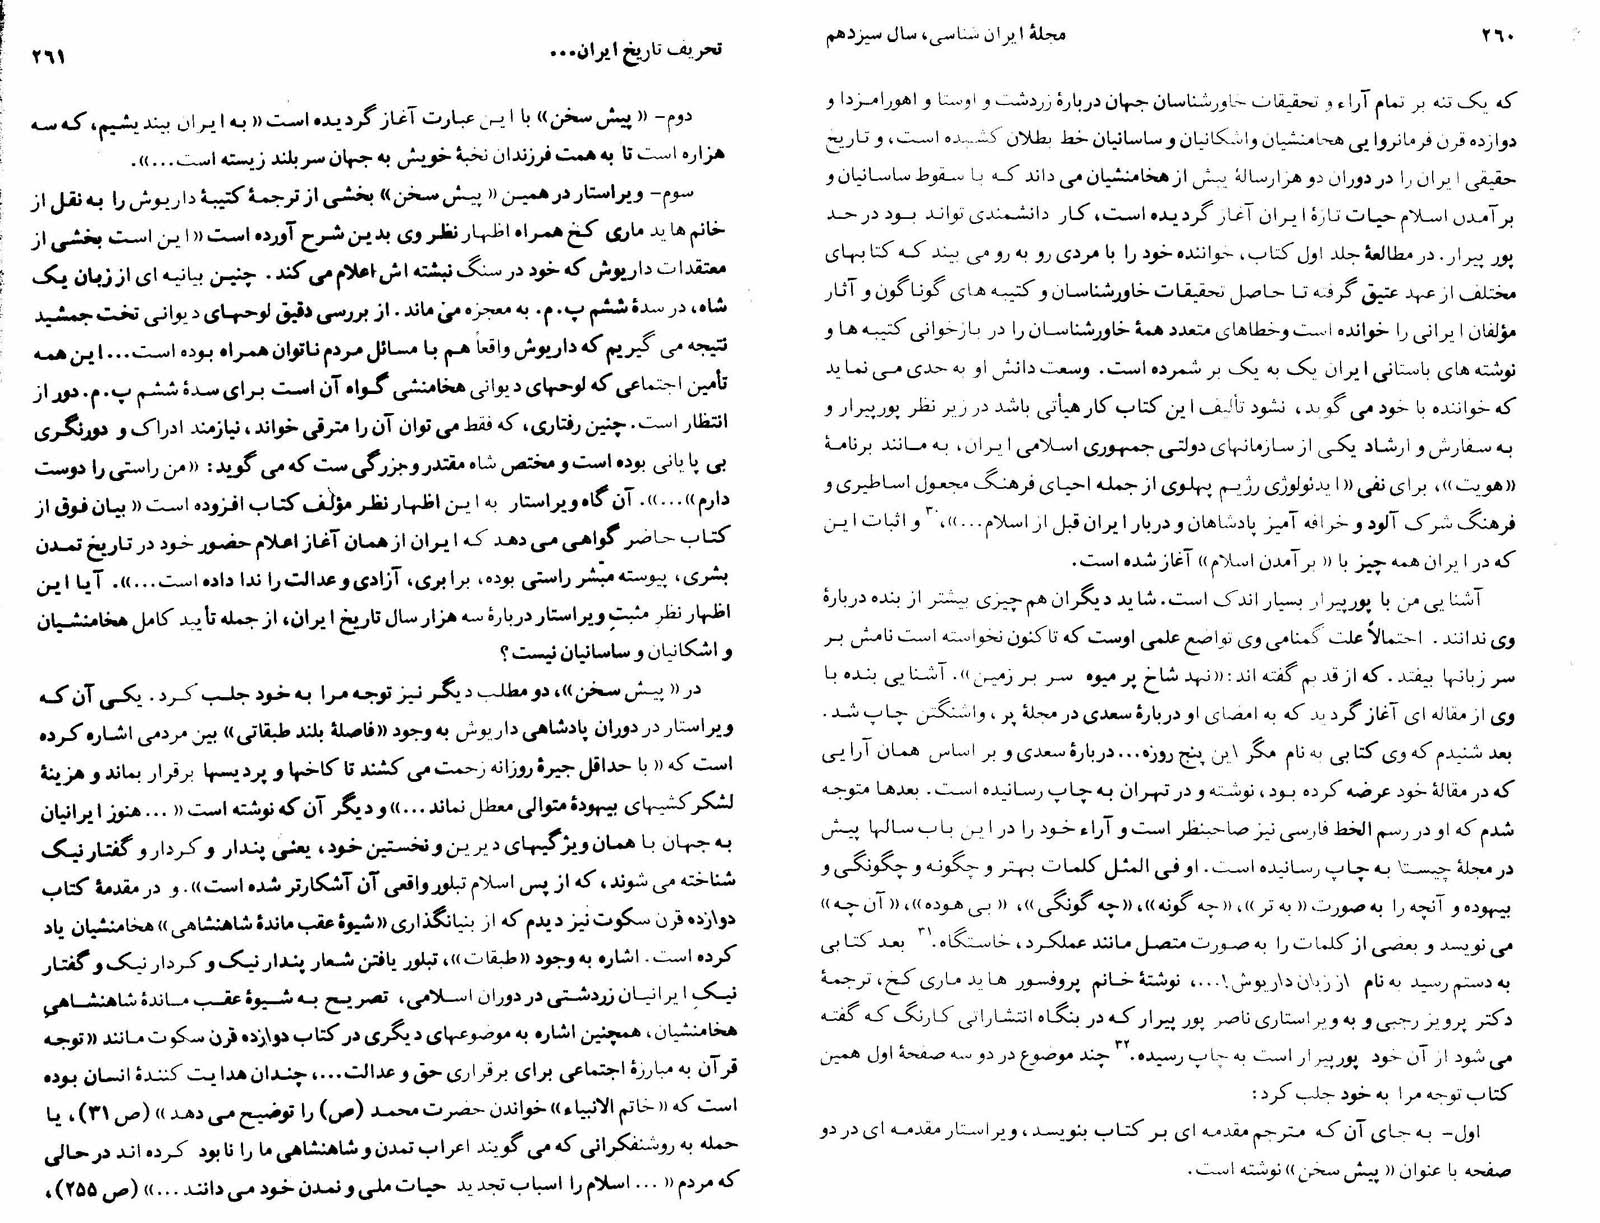 ۲٦۰
مجلهٔ ایران شناسی، سال سیزدهم
که یک تنه بر تمام آراء و تحقیقات خاورشناسان جهان دربارهٔ زردشت و اوستا و اهورامزدا و
دوازده قرن فرمانروایی هخامنشیان واشکانیان و ساسانیان خط بطلان کشیده است، و تاریخ
حقیقی ایران را در دوران دو هزارسالهٔ پیش از هخامنشیان می داند که با سقوط ساسانیان و
برآمدن اسلام حیات تازهٔ ایران آغاز گردیده است، کار دانشمندی تواند بود در حد
پورپیرار. در مطالعهٔ جلد اول کتاب، خواننده خود را با مردی رو به رو می بیند که کتابهای
مختلف از عهد عتیق گرفته تا حاصل تحقیقات خاورشناسان و کتیبه های گوناگون و آثار
مؤلفان ایرانی را خوانده است وخطاهای متعدد همهٔ خاورشناسان را در بازخوانی کتیبه ها و
نوشته های باستانی ایران یک به یک بر شمرده است. وسعت دانش او به حدی می نماید
که خواننده با خود می گوید، نشود تألیف این کتاب کار هیأتی باشد در زیر نظر پورپیرار و
به سفارش و ارشاد یکی از سازمانهای دولتی جمهوری اسلامی ایران، به مانند برنامهٔ
«هویت»، برای نفی «ایدئولوژی رژیم پهلوی از جمله احیای فرهنگ مجعول اساطیری و
فرهنگ شرک آلود و خرافه آمیز پادشاهان و دربار ایران قبل از اسلام...»،۳۰ و اثبات این
که در ایران همه چیز با «برآمدن اسلام» آغاز شده است.
آشنایی من با پورپیرار بسیار اندک است. شاید دیگران هم چیزی بیشتر از بنده دربارهٔ
وی ندانند. احتمالاً علت گمنامی وی تواضع علمی اوست که تا کنون نخواسته است نامش بر
سر زبانها بیفتد. که از قدیم گفته اند: «نهد شاخ پر میوه سر بر زمین». آشنایی بنده با
وی از مقاله ای آغاز گردید که به امضای او دربارهٔ سعدی در مجلهٔ پر، واشنگتن چاپ شد.
بعد شنیدم که وی کتابی به نام مگر این پنج روزه... دربارهٔ سعدی و بر اساس همان آرایی
که در مقالهٔ خود عرضه کرده بود، نوشته و در تهران به چاپ رسانیده است. بعدها متوجه
شدم که او در رسم الخط فارسی نیز صاحبنظر است و آراء خود را در این باب سالها پیش
در مجلهٔ چیستا به چاپ رسانیده است. او فی المثل کلمات بهتر و چگونه و چگونگی و
بیهوده و آنچه را به صورت «به تر»، «چه گونه»، «چه گونگی»، «بی هوده»، «آن چه»
می نویسد و بعضی از کلمات را به صورت متصل مانند عملکرد، خاستگاه.۳۱ بعد کتابی
به دستم رسید به نام از زبان داریوش!...، نوشتهٔ خانم پروفسور هاید ماری کخ، ترجمهٔ
دکتر پرویز رجبی و به ویراستاری ناصر پورپیرار که در بنگاه انتشاراتی کارنگ که گفته
می شود از آن خود پورپیرار است به چاپ رسیده.۳۲ چند موضوع در دو سه صفحهٔ اول همین
کتاب توجه مرا به خود جلب کرد:
اول- به جای آن که مترجم مقدمه ای بر کتاب بنویسد، ویراستار مقدمه ای در دو
صفحه با عنوان «پیش سخن» نوشته است.
تحریف تاریخ ایران...
۲٦۱
دوم- «پیش سخن» با این عبارت آغاز گردیده است «به ایران بیندیشیم، که سه
هزاره است تا به همت فرزندان نخبهٔ خویش به جهان سربلند زیسته است...».
سوم- ویراستار در همین «پیش سخن» بخشی از ترجمهٔ کتیبهٔ داریوش را به نقل از
خانم هاید ماری کخ همراه اظهار نظر وی بدین شرح آورده است «این است بخشی از
معتقدات داریوش که خود در سنگ نبشته اش اعلام می کند. چنین بیانیه ای از زبان یک
شاه، در سدهٔ ششم پ.م. به معجزه می ماند. از بررسی دقیق لوحهای دیوانی تخت جمشید
نتیجه می گیریم که داریوش واقعاً هم با مسائل مردم ناتوان همراه بوده است... این همه
تأمین اجتماعی که لوحهای دیوانی هخامنشی گواه آن است برای سدهٔ ششم پ.م. دور از
انتظار است. چنین رفتاری، که فقط می توان آن را مترقی خواند، نیازمند ادراک و دورنگری
بی پایانی بوده است و مختص شاه مقتدر و بزرگی ست که می گوید: «من راستی را دوست
دارم»...». آن گاه ویراستار به این اظهار نظر مؤلف کتاب افزوده است «بیان فوق از
کتاب حاضر گواهی می دهد که ایران از همان آغاز اعلام حضور خود در تاریخ تمدن
بشری، پیوسته مبشر راستی بوده، برابری، آزادی و عدالت را ندا داده است...». آیا این
اظهار نظر مثبتِ ویراستار دربارهٔ سه هزار سال تاریخ ایران، از جمله تأیید کامل هخامنشیان
و اشکانیان و ساسانیان نیست؟
در «پیش سخن»، دو مطلب دیگر نیز توجه مرا به خود جلب کرد. یکی آن که
ویراستار در دوران پادشاهی داریوش به وجود «فاصلهٔ بلند طبقاتی» بین مردمی اشاره کرده
است که «با حداقل جیرهٔ روزانه زحمت می کشند تا کاخها و پردیسها برقرار بماند و هزینهٔ
لشکرکشیهای بیهودهٔ متوالی معطل نماند...» و دیگر آن که نوشته است «... هنوز ایرانیان
به جهان با همان ویژگیهای دیرین و نخستین خود، یعنی پندار و کردار و گفتار نیک
شناخته می شوند، که از پس اسلام تبلور واقعی آن آشکارتر شده است». و در مقدمهٔ کتاب
دوازده قرن سکوت نیز دیدم که از بنیانگذاری «شیوهٔ عقب ماندهٔ شاهنشاهی» هخامنشیان یاد
کرده است. اشاره به وجود «طبقات»، تبلور یافتن شعار پندار نیک و کردار نیک و گفتار
نیکِ ایرانیان زردشتی در دوران اسلامی، تصریح به شیوهٔ عقب ماندهٔ شاهنشاهیِ
هخامنشیان، همچنین اشاره به موضوعهای دیگری در کتاب دوازده قرن سکوت مانند «توجه
قرآن به مبارزهٔ اجتماعی برای برقراری حق و عدالت...، چندان هدایت کنندهٔ انسان بوده
است که «خاتم الانبیاء» خواندن حضرت محمد (ص) را توضیح می دهد» (ص ۳۱)، یا
حمله به روشنفکرانی که می گویند اعراب تمدن و شاهنشاهی ما را نابود کرده اند در حالی
که مردم «... اسلام را اسباب تجدید حیات ملی و تمدن خود می دانند...» (ص ۲۵۵)،